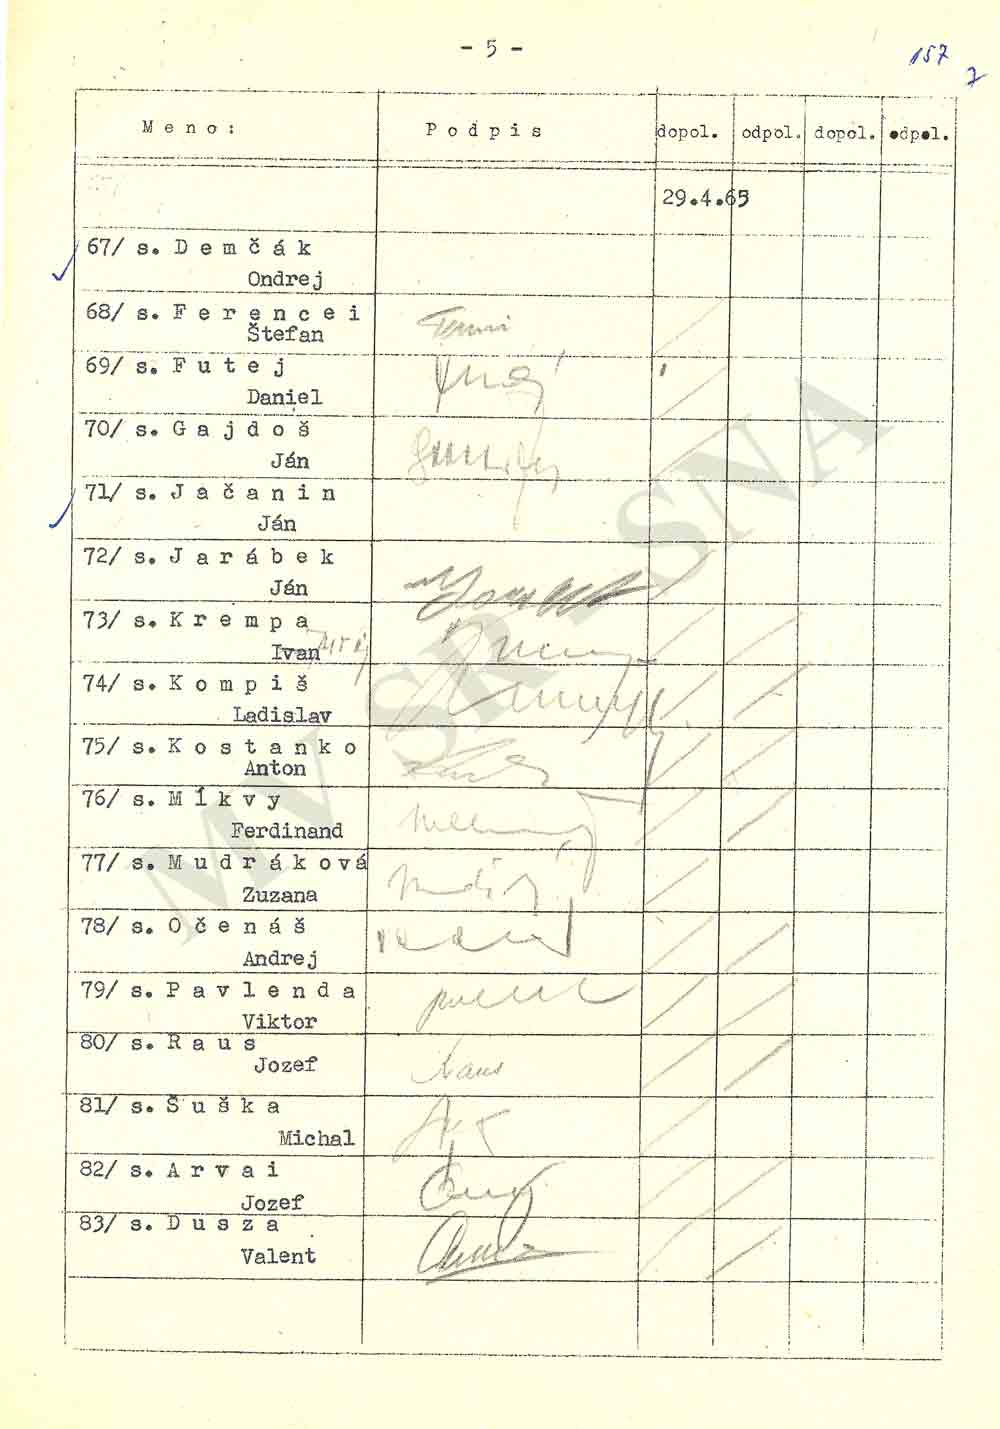 - 5 -
157
7
Meno: Podpis dopol. odpol. dopol. odpol.
29.4.65
67/ s. Demčák
Ondrej
68/ s. Ferencei
Štefan
69/ s. Futej
Daniel
70/ s. Gajdoš
Ján
71/ s. Jačanin
Ján
72/ s. Jarábek
Ján
73/ s. Krempa
Ivan
74/ s. Kompiš
Ladislav
75/ s. Kostanko
Anton
76/ s. Míkvy
Ferdinand
77/ s. Mudráková
Zuzana
78/ s. Očenáš
Andrej
79/ s. Pavlenda
Viktor
80/ s. Raus
Jozef
Raus
81/ s. Šuška
Michal
82/ s. Arvai
Jozef
83/ s. Dusza
Valent
MV SR SNA